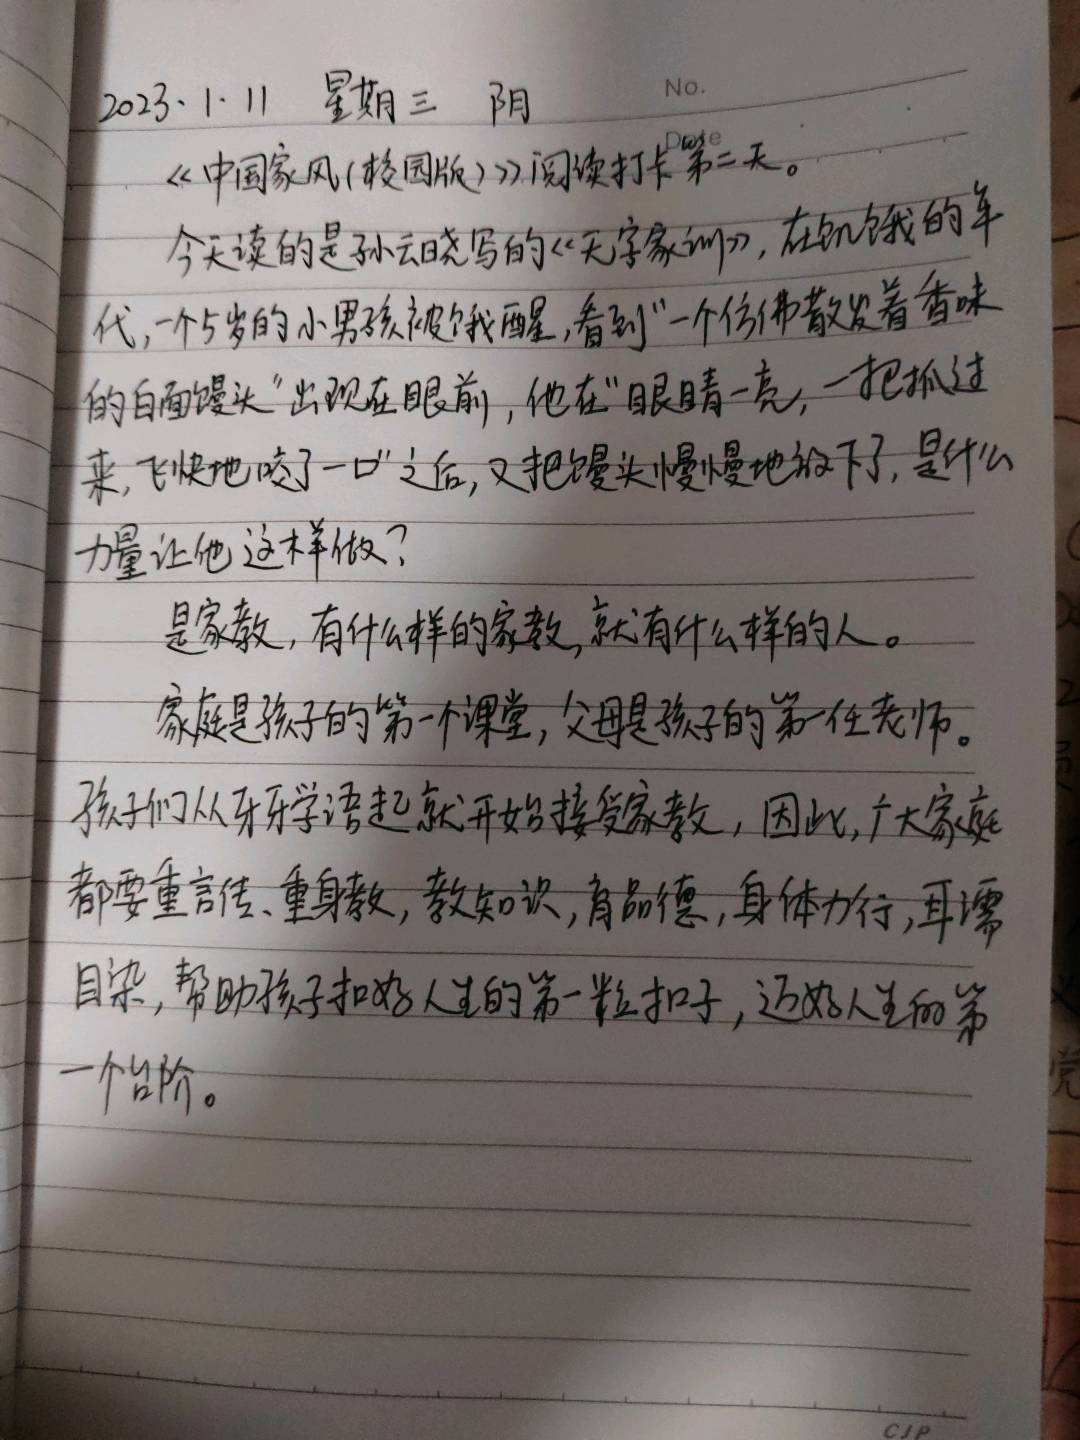 No.
Date
2023.1.11 星期三 阴
《中国家风(校园版)》阅读打卡第二天。
今天读的是孙云晓写的《无字家训》,在饥饿的年
代,一个5岁的小男孩被饿醒,看到"一个仿佛散发着香味
的白面馒头"出现在眼前,他在"眼睛一亮,一把抓过
来,飞快地咬了一口"之后,又把馒头慢慢地放下了,是什么
力量让他这样做?
是家教,有什么样的家教,就有什么样的人。
家庭是孩子的第一个课堂,父母是孩子的第一任老师。
孩子们从牙牙学语起就开始接受家教,因此,广大家庭
都要重言传、重身教,教知识,育品德,身体力行,耳濡
目染,帮助孩子扣好人生的第一粒扣子,迈好人生的第
一个台阶。
CJP